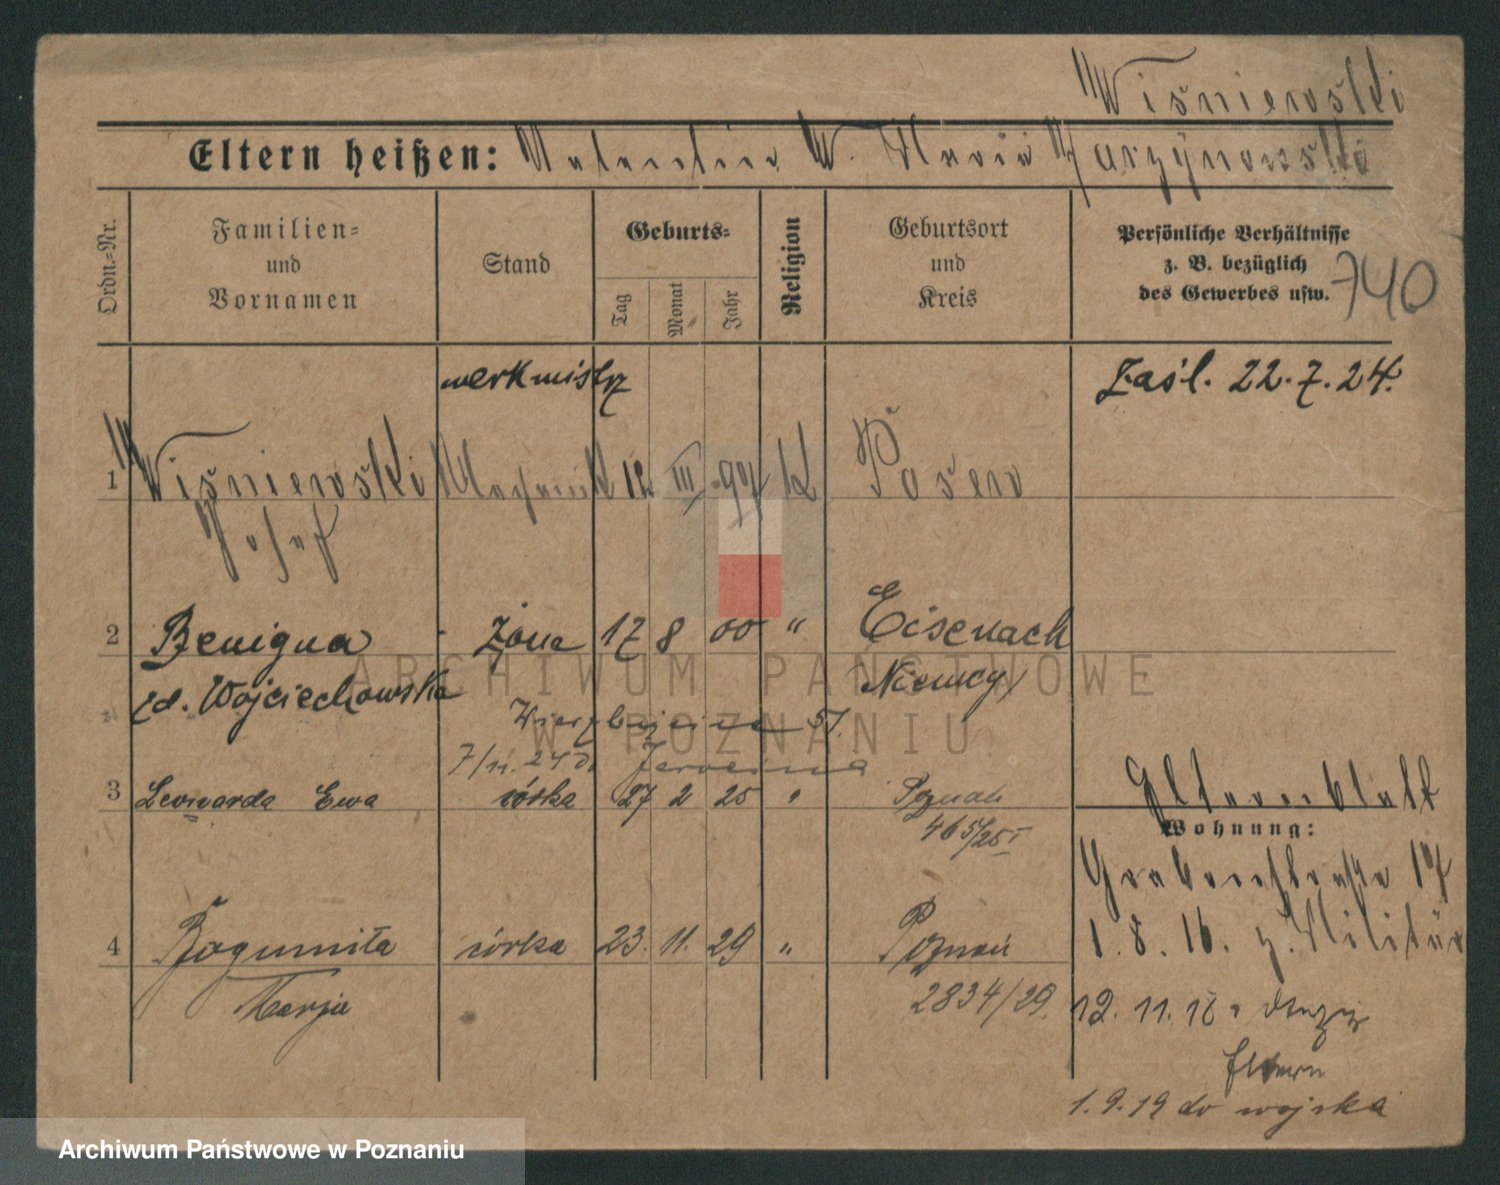 Wiśniewski
Eltern heißen: Valentin W. Maria Jurzynowski
Ordn.-Nr.
Familien- und Vornamen
Stand
Geburts-
Tag
Monat
Jahr
Religion
Geburtsort und Kreis
Persönliche Verhältnisse
z. B. bezüglich
des Gewerbes usw.
740
werkmistrz
zaśl. 22.7.24.
1 Wiśniewski Mechanik 12 III 97 k Posen
Josef
2 Benigna żona 17 8 00 " Eisenach
zd. Wojciechowska Niemcy
Wierzbięcice 57.
7/11. 24
3 Leonarda Ewa córka 27 2 25 " Poznań
465/25 I
Elternblatt
Wohnung:
Grabenstraße 17
1.8.16. z. Militär
4 Bogumiła córka 23. 11. 29 " Poznań
Marja 2834/29.
12.11.18
Eltern
1.9.19 do wojska
ARCHIWUM PAŃSTWOWE
W POZNANIU
Archiwum Państwowe w Poznaniu